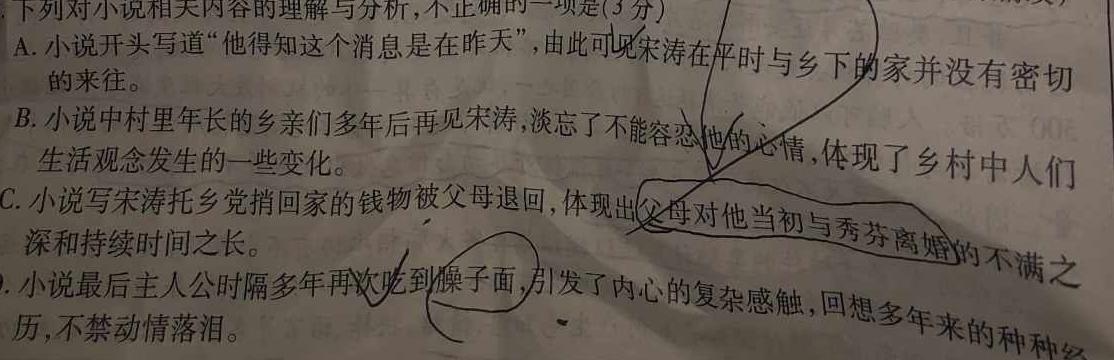 下列对小说相关内容的理解与分析,不正确的一项是(3分)
A. 小说开头写道“他得知这个消息是在昨天”,由此可见宋涛在平时与乡下的家并没有密切
的来往。
B. 小说中村里年长的乡亲们多年后再见宋涛,淡忘了不能容忍他的心情,体现了乡村中人们
生活观念发生的一些变化。
C. 小说写宋涛托乡党捎回家的钱物被父母退回,体现出父母对他当初与秀芬离婚的不满之
深和持续时间之长。
. 小说最后主人公时隔多年再次吃到臊子面,引发了内心的复杂感触,回想多年来的种种经
历,不禁动情落泪。